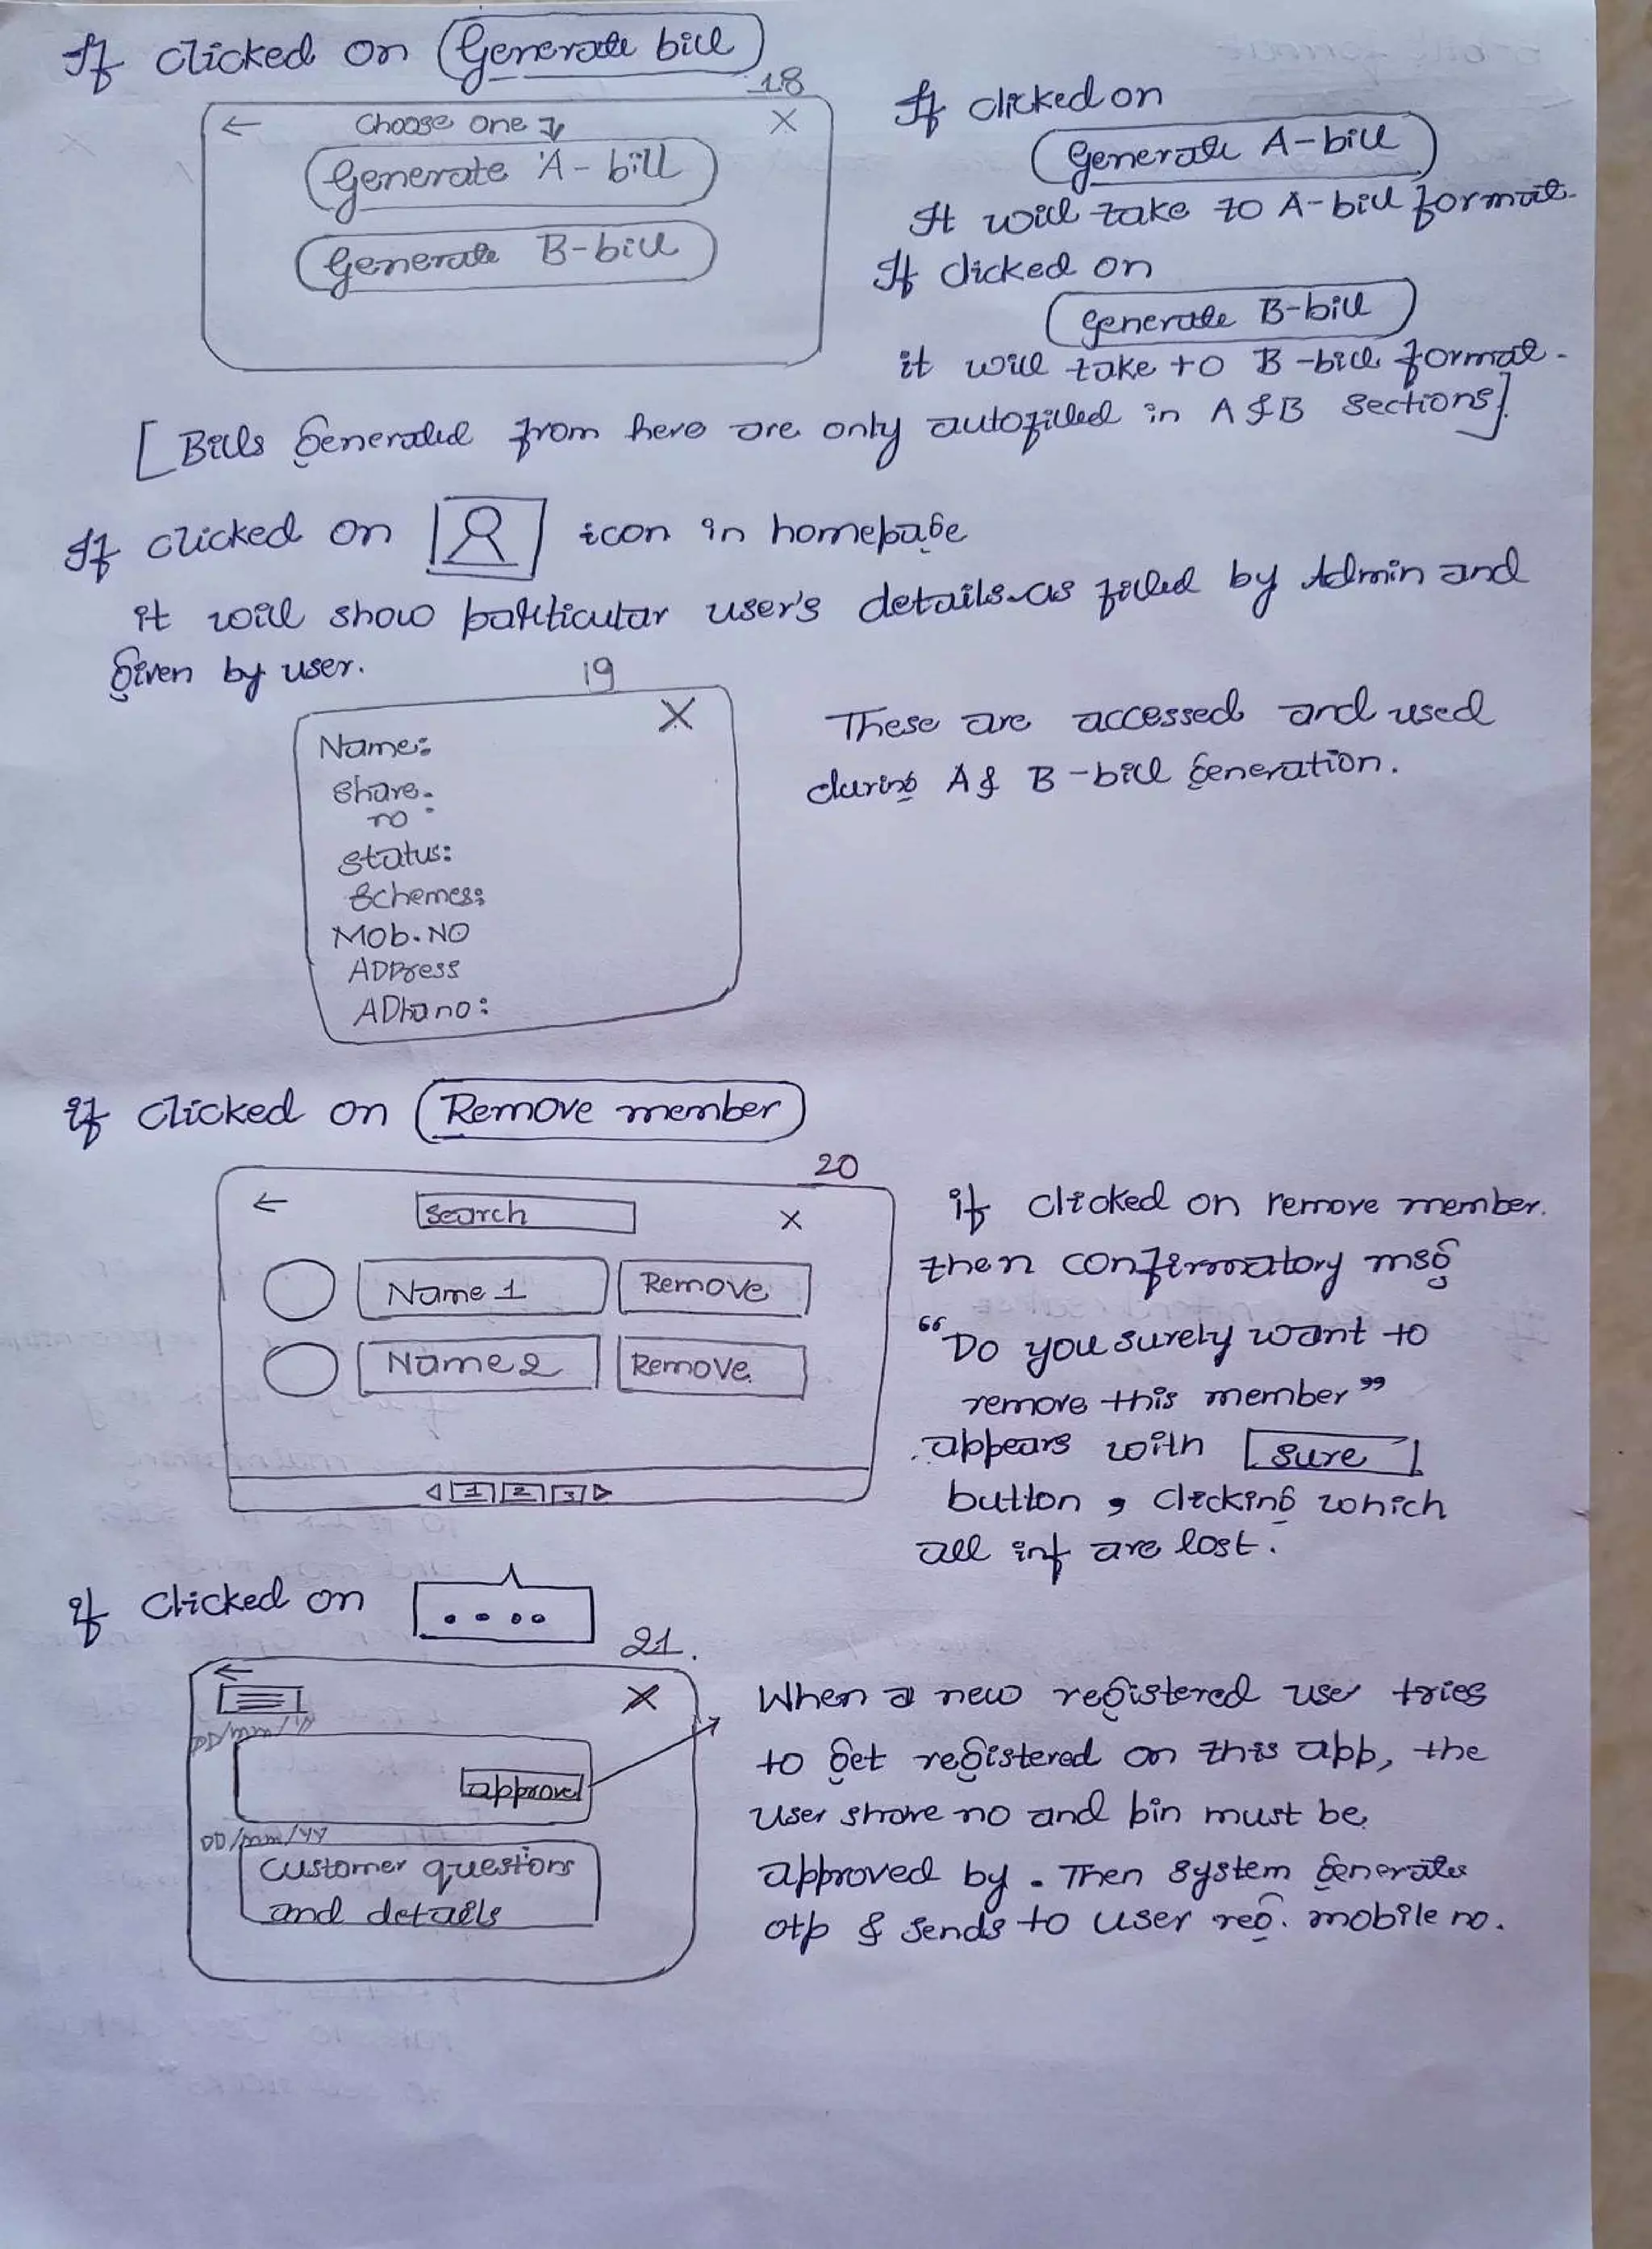 If clicked on Generate bill
18
← Choose one ↓ X
Generate A-bill
Generate B-bill
If clicked on
Generate A-bill
It will take to A-bill format.
If clicked on
Generate B-bill
it will take to B-bill format.
[Bills Generated from here are only autofilled in A & B sections].
If clicked on icon in homepage
it will show particular user's details as filled by Admin and
Given by user.
19
X
Name:
Share
no :
Status:
Schemes:
Mob. NO
ADDress
ADhano:
These are accessed and used
during A & B-bill Generation.
if clicked on Remove member
20
← Search X
Name 1 Remove
Name 2 Remove
1 2 3
if clicked on remove member.
then confirmatory msg
"Do you surely want to
remove this member"
appears with sure
button, clicking which
all inf are lost.
if clicked on ....
21.
← X
DD/mm/YY
approve
DD/mm/YY
customer questions
and details
When a new registered use tries
to get registered on this app, the
user share no and pin must be
approved by. Then system generates
otp & sends to user reg. mobile no.